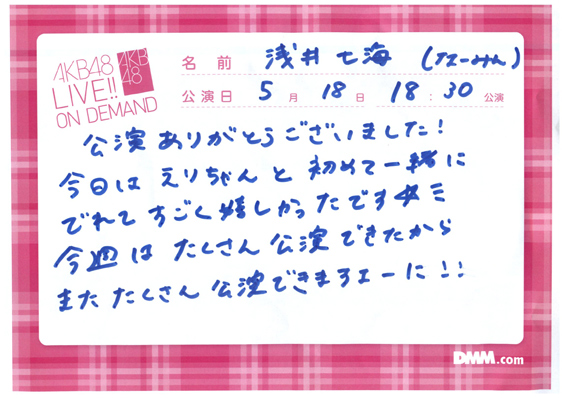 AKB48
LIVE!!
ON DEMAND
AKB
48
名前 浅井七海 (なーみん)
公演日 5月18日 18:30公演
公演ありがとうございました!
今日はえりちゃんと初めて一緒に
でれてすごく嬉しかったです
今週はたくさん公演できたから
またたくさん公演できますよーに!!
DMM.com